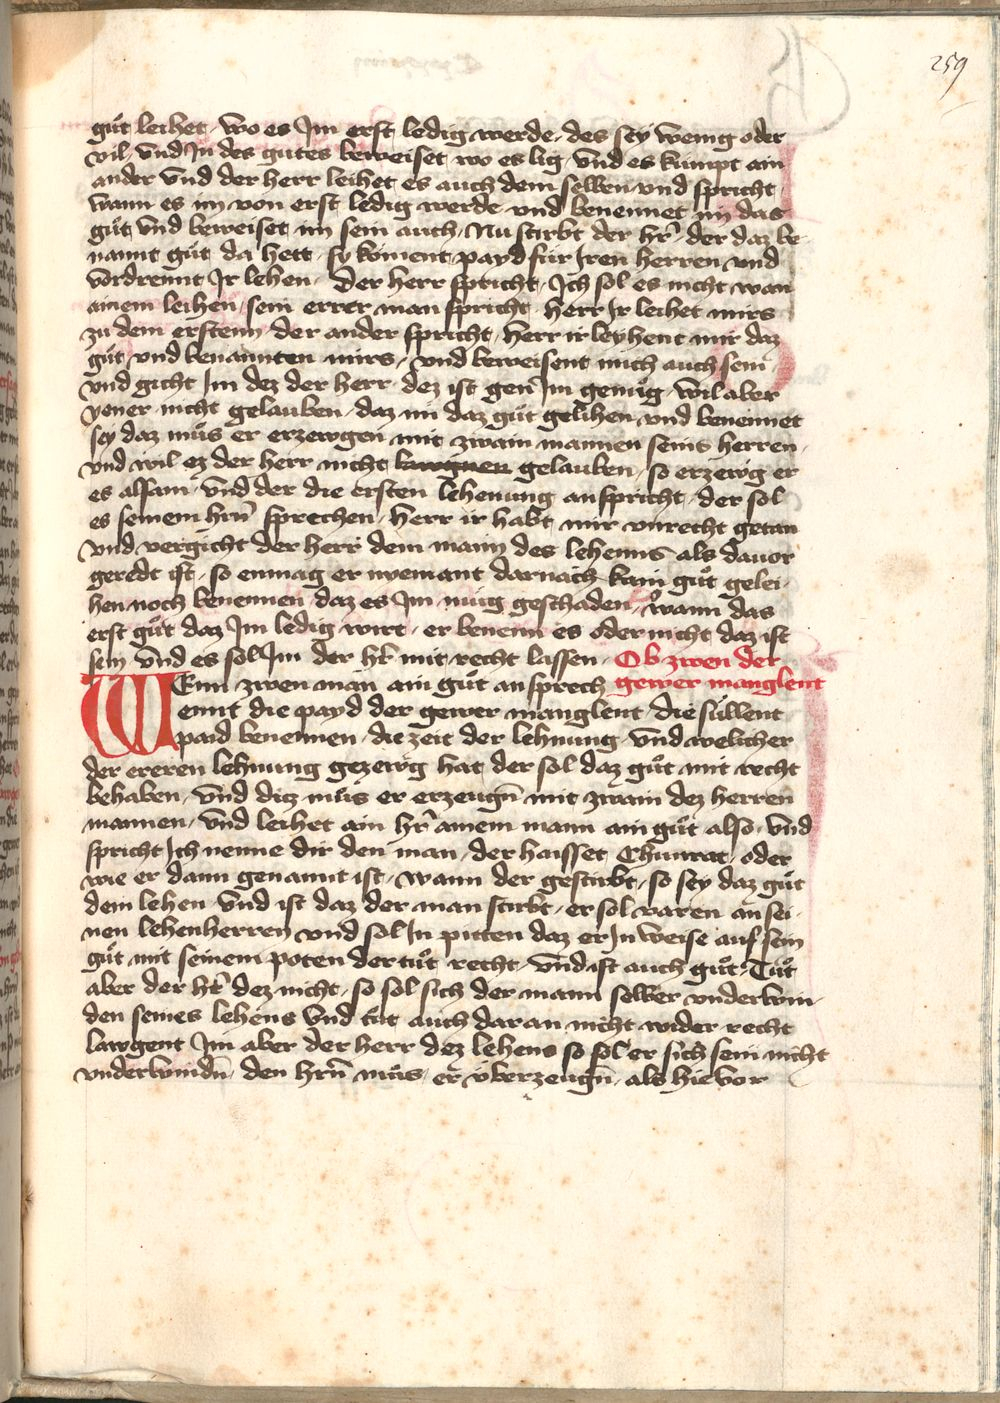 259
gůt leihet / wo es Im erst ledig werde / des sey wenig oder
vil / vnd In des gutes beweiset wo es lig / vnd es kumpt ain
ander vnd der herr leihet es auch dem selben vnd spricht /
wann es im von erst ledig werde vnd benennet im das
gůt vnd beweiset im sein auch / Nu stirbt der hr̄ / der daz be
nannt gůt da hett / sy koment payd für Iren herren vnd
vordrennt Ir lehen / Der herr spricht / Ich sol es nicht wan
ainem leihen / sein errer man spricht / herr Ir leihet mirs
zu dem erstenn / der ander spricht / herr ir leyhent mir daz
gůt vnd benannten mirs / vnd beweisent mich auch sein /
vnd gicht Im dez der herr / dez ist gen Im genůg / wil aber
yener nicht gelauben / daz im daz gůt gelihen vnd benennet
sey daz můs er erzewgen mit zwain mannen seins herren /
vnd wil ez der herr nicht lawgnen gelauben / so erzewg er
es alsam / vnd der die ersten lehenung anspricht / der sol
es seinem hrn̄ sprechen / herr ir habt mir vnrecht getan
vnd vergicht der herr dem mann des lehenns als dauor
geredt ist / so enmag er nyemant darnach kain gůt gelei /
hen noch benennen / daz es Im mug geschaden / wann das
erst gůt daz Im ledig wirt / er benenn es oder nicht daz ist
sein vnd es sol Im der hr̄ mit recht lassen / Ob zwen der
WEnn zwen man ain gůt ansprech gewer manglent
ennt die payd der gewer manglent die süllent
paid benennen / die zeit der lehnung / vnd welicher
der ereren lehnung gezewg hat der sol daz gůt mit recht
behaben / vnd ditz můs er erzeugn̄ mit zwain dez herren
mannen / vnd leihet ain hr̄ ainem mann ain gůt also / vnd
spricht Ich nenne dir den man / der haisset Chunrat / oder
wie er dann genannt ist / wann der gestirbt / so sey daz gůt
dein lehen / vnd ist daz der man stirbt / er sol varen an sei /
nen lehenherren vnd sol In pitten daz er In weise auf sein
gůt mit seinem poten der tůt recht / vnd ist auch gůt / Tůt
aber der hr̄ dez nicht / so sol sich der mann selber vnderwin /
den seines lehens vnd tůt auch daran nicht wider recht
lawgent Im aber der herr dez lehens so sol er sich sein nicht
vnderwindn̄ / den hrn̄ můs er v̈berzeugn̄ / als hieuor